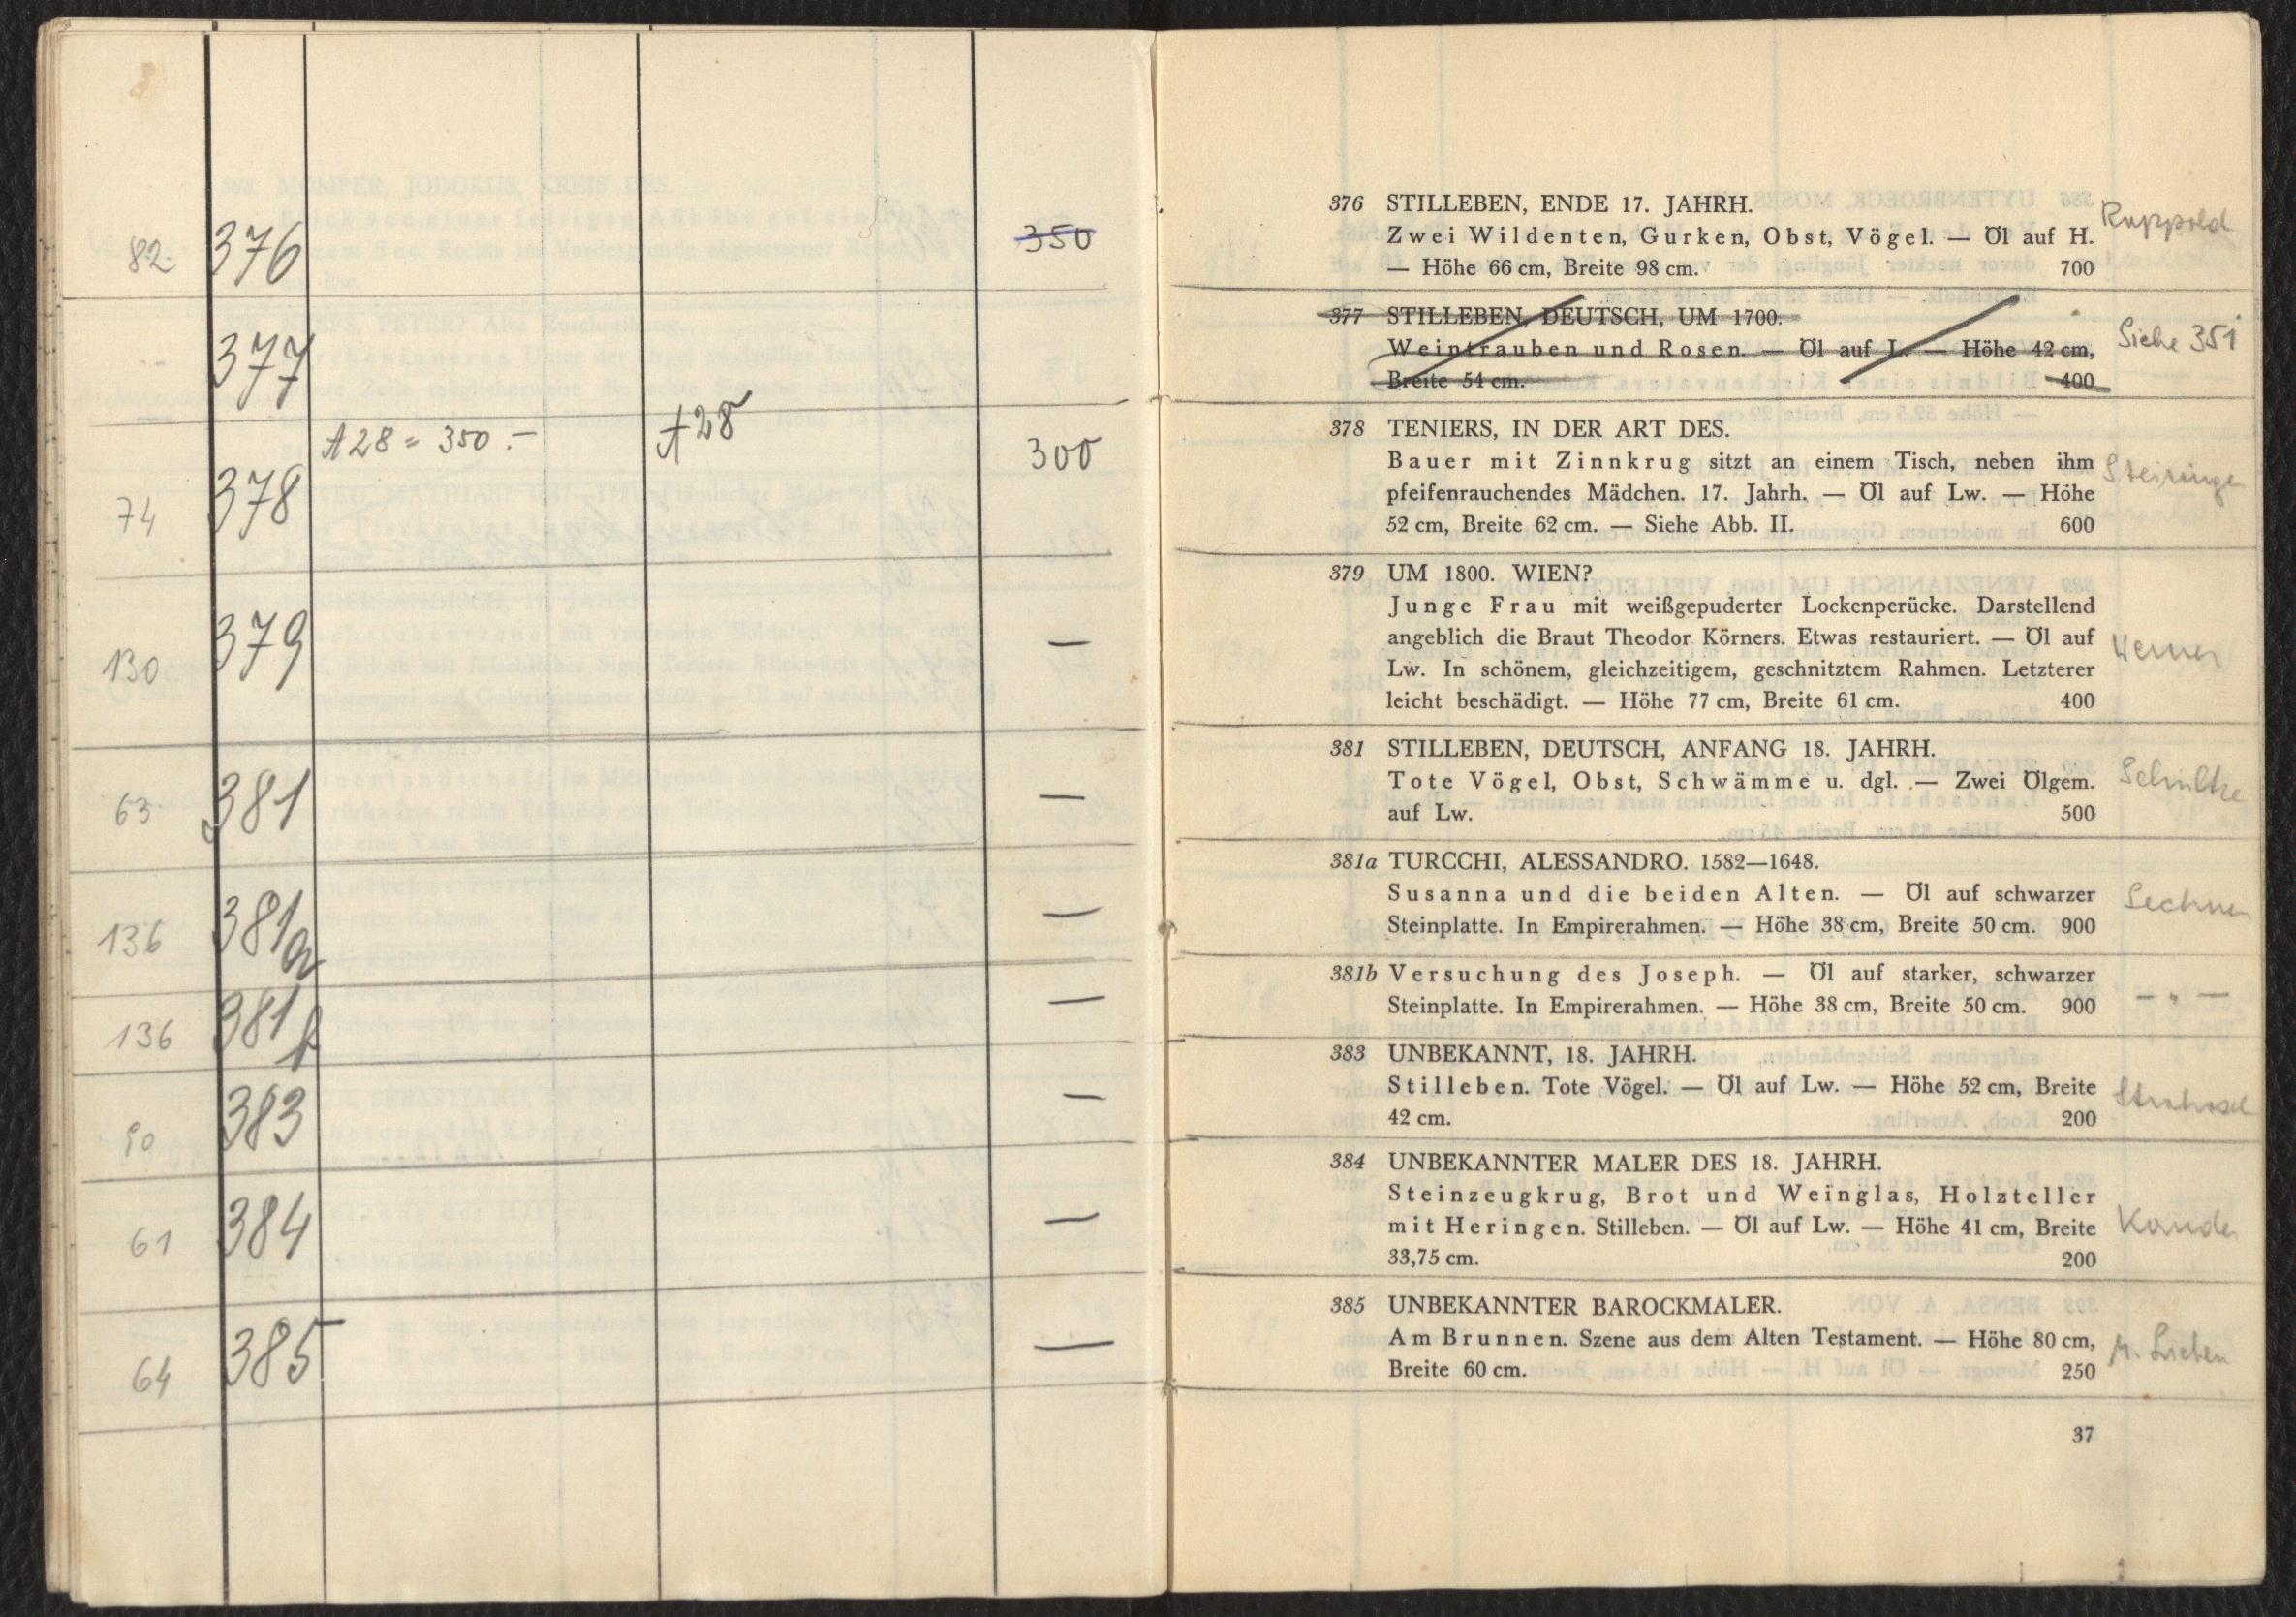 82 376 350
377
A28 = 350.- A28
74 378 300
130 379 —
63 381 —
136 381a —
136 381b —
90 383 —
61 384 —
64 385 —
376 STILLEBEN, ENDE 17. JAHRH.
Zwei Wildenten, Gurken, Obst, Vögel. — Öl auf H. Ruppold
— Höhe 66 cm, Breite 98 cm. 700
377 STILLEBEN, DEUTSCH, UM 1700.
Weintrauben und Rosen. — Öl auf L. — Höhe 42 cm, Siehe 351
Breite 54 cm. 400
378 TENIERS, IN DER ART DES.
Bauer mit Zinnkrug sitzt an einem Tisch, neben ihm
pfeifenrauchendes Mädchen. 17. Jahrh. — Öl auf Lw. — Höhe
52 cm, Breite 62 cm. — Siehe Abb. II. 600
379 UM 1800. WIEN?
Junge Frau mit weißgepuderter Lockenperücke. Darstellend
angeblich die Braut Theodor Körners. Etwas restauriert. — Öl auf Werner
Lw. In schönem, gleichzeitigem, geschnitztem Rahmen. Letzterer
leicht beschädigt. — Höhe 77 cm, Breite 61 cm. 400
381 STILLEBEN, DEUTSCH, ANFANG 18. JAHRH.
Tote Vögel, Obst, Schwämme u. dgl. — Zwei Ölgem. Schultze
auf Lw. 500
381a TURCCHI, ALESSANDRO. 1582—1648.
Susanna und die beiden Alten. — Öl auf schwarzer Lechner
Steinplatte. In Empirerahmen. — Höhe 38 cm, Breite 50 cm. 900
381b Versuchung des Joseph. — Öl auf starker, schwarzer — " —
Steinplatte. In Empirerahmen. — Höhe 38 cm, Breite 50 cm. 900
383 UNBEKANNT, 18. JAHRH.
Stilleben. Tote Vögel. — Öl auf Lw. — Höhe 52 cm, Breite
42 cm. 200
384 UNBEKANNTER MALER DES 18. JAHRH.
Steinzeugkrug, Brot und Weinglas, Holzteller
mit Heringen. Stilleben. — Öl auf Lw. — Höhe 41 cm, Breite
33,75 cm. 200
385 UNBEKANNTER BAROCKMALER.
Am Brunnen. Szene aus dem Alten Testament. — Höhe 80 cm,
Breite 60 cm. 250
37